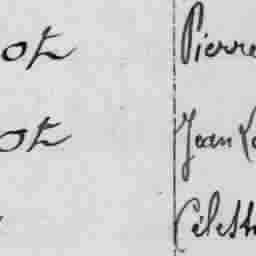 ot Pierre
ot Jean Lo
Célest